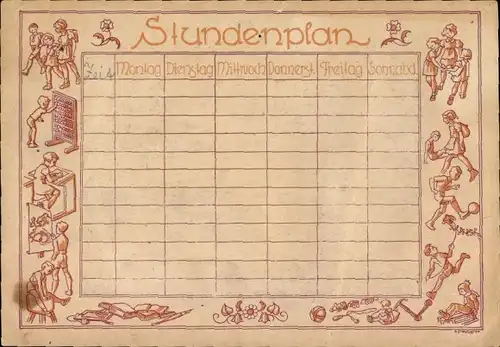 Stundenplan
Zeit Montag Dienstag Mittwoch Donnerst. Freitag Sonnabd.